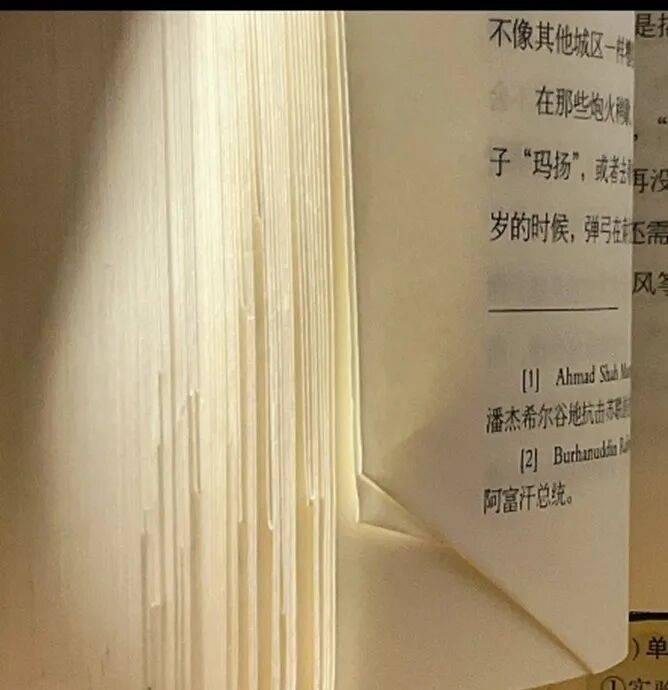 不像其他城区一样
在那些炮火
子“玛扬”，或者去
岁的时候，弹弓在
[1] Ahmad Shah
潘杰希尔谷地抗击苏联
[2] Burhanuddin
阿富汗总统。
是
，“
再没
还需
风筝
）单
①实验